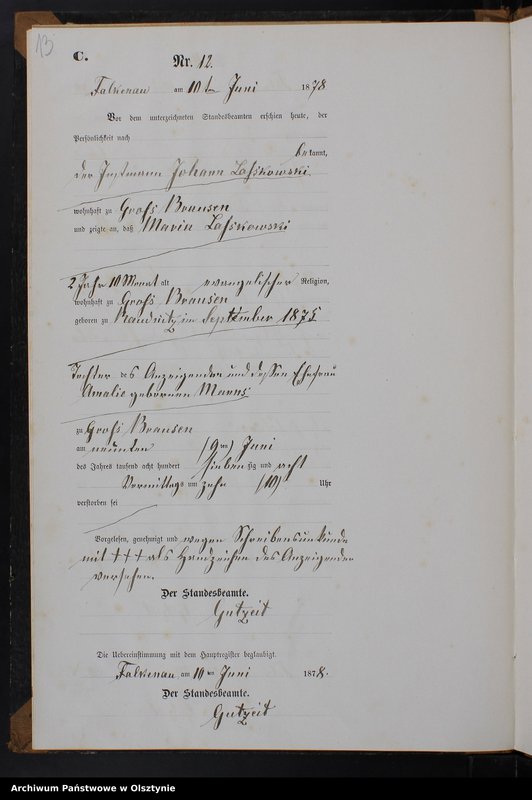 13
C.
Nr. 12.
Falkenau am 10ten Juni 1878.
Vor dem unterzeichneten Standesbeamten erschien heute, der
Persönlichkeit nach
bekannt,
der Instmann Johann Laskowski
wohnhaft zu Groß Brausen
und zeigte an, daß Marie Laskowski
2 Jahr 10 Monat alt evangelischer Religion,
wohnhaft zu Groß Brausen
geboren zu Raudnitz im September 1875
Tochter des Anzeigenden und dessen Ehefrau
Amalie geborenen
zu Groß Brausen
am neunten (9ten) Juni
des Jahres tausend acht hundert siebenzig und acht
Vormittags um zehn (10) Uhr
verstorben sei
Vorgelesen, genehmigt und wegen Schreibensunkunde
mit +++ als Handzeichen des Anzeigenden
versehen.
Der Standesbeamte.
Gutzeit
Die Uebereinstimmung mit dem Hauptregister beglaubigt.
Falkenau am 10ten Juni 1878.
Der Standesbeamte.
Gutzeit
Archiwum Państwowe w Olsztynie